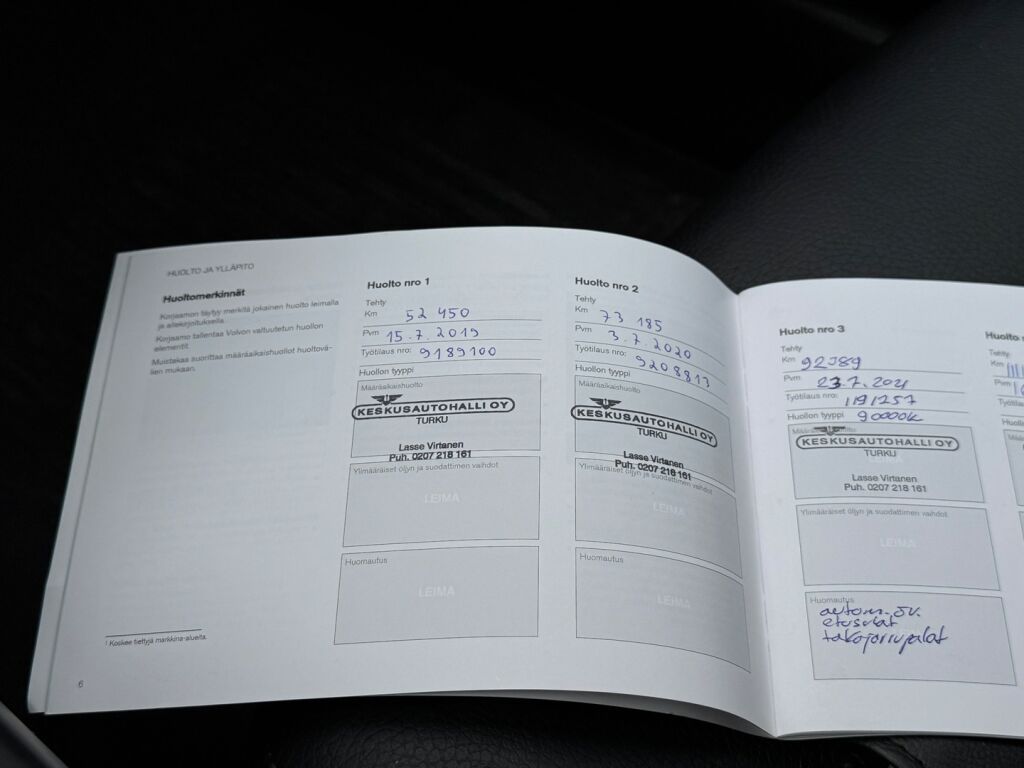 HUOLTO JA YLLÄPITO
Huoltomerkinnät
Korjaamon täytyy merkitä jokainen huolto leimalla
ja allekirjoituksella.
Korjaamo tallentaa Volvon valtuutetun huollon
elementit.
Muistakaa suorittaa määräaikaishuollot huoltovä-
lien mukaan.
1 Koskee tiettyjä markkina-alueita.
6
Huolto nro 1
Tehty
Km 52 450
Pvm 15.7.2019
Työtilaus nro: 9189100
Huollon tyyppi
Määräaikaishuolto
KESKUSAUTOHALLI OY
TURKU
Lasse Virtanen
Puh. 0207 218 161
Ylimääräiset öljyn ja suodattimen vaihdot
LEIMA
Huomautus
LEIMA
Huolto nro 2
Tehty
Km 73 185
Pvm 3.7.2020
Työtilaus nro: 9208813
Huollon tyyppi
Määräaikaishuolto
KESKUSAUTOHALLI OY
TURKU
Lasse Virtanen
Puh. 0207 218 161
Ylimääräiset öljyn ja suodattimen vaihdot
LEIMA
Huomautus
LEIMA
Huolto nro 3
Tehty
Km 92389
Pvm 23.7.2021
Työtilaus nro: 1191257
Huollon tyyppi 90000k
KESKUSAUTOHALLI OY
TURKU
Lasse Virtanen
Puh. 0207 218 161
Ylimääräiset öljyn ja suodattimen vaihdot
LEIMA
Huomautus
autom.öv.
etusulat
takajarrupalat
Huolto
Tehty
Km
Pvm